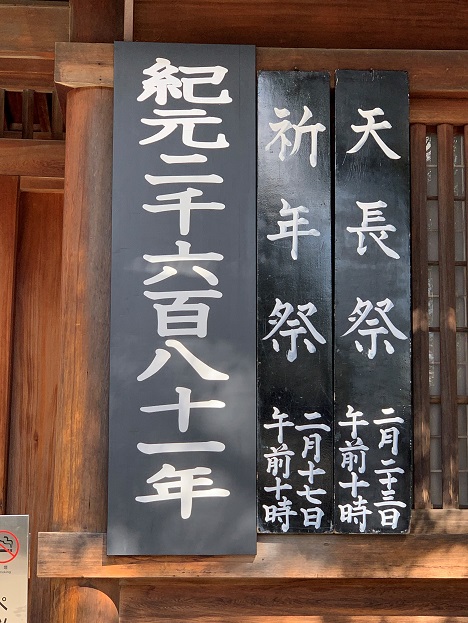 天長祭
二月二十三日
午前十時
祈年祭
二月十七日
午前十時
紀元二千六百八十一年